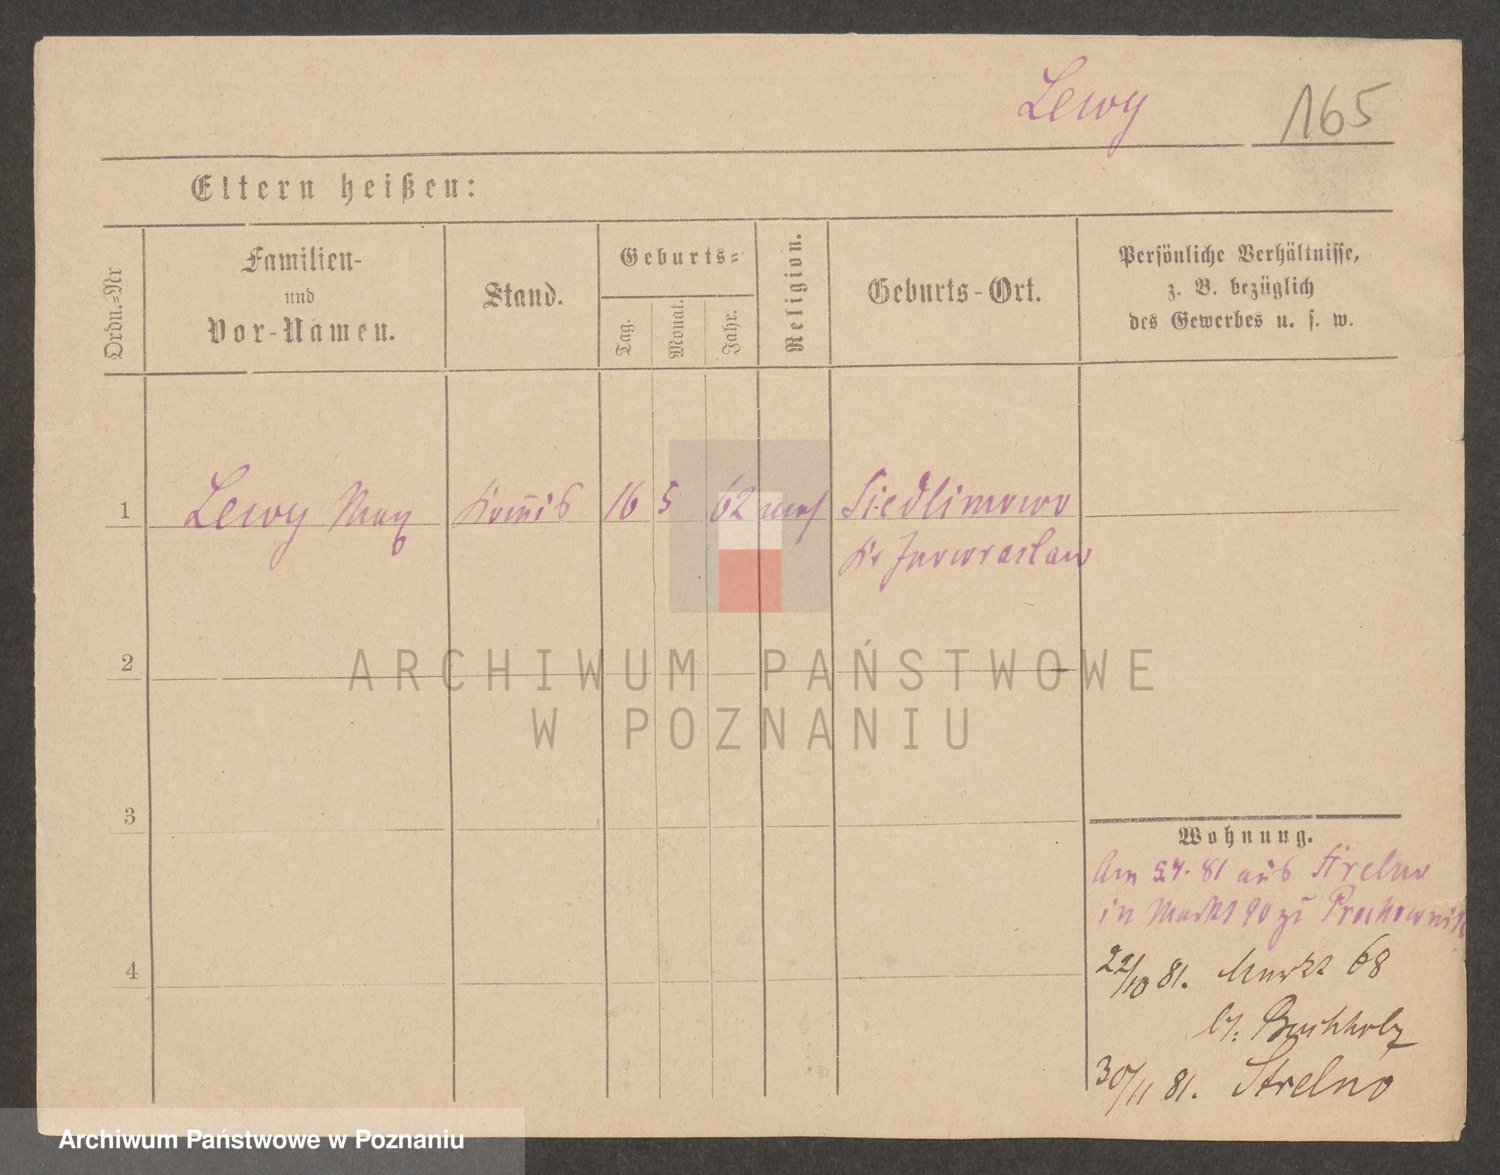 Lewy 165
Eltern heißen:
Ordn.=Nr
Familien-
und
Vor-Namen.
Stand.
Geburts=
Tag.
Monat.
Jahr.
Religion.
Geburts-Ort.
Persönliche Verhältnisse,
z. B. bezüglich
des Gewerbes u. s. w.
1 Lewy Max Kom̄is 16 5 62 mos Siedlimowo
Kr Inowraclaw
2
3
4
Wohnung.
Am 5.4. 81 aus Strelno
in Markt 90 zu
22/10 81. Markt 68
b/. Buchholz
30/11 81. Strelno
ARCHIWUM PAŃSTWOWE
W POZNANIU
Archiwum Państwowe w Poznaniu